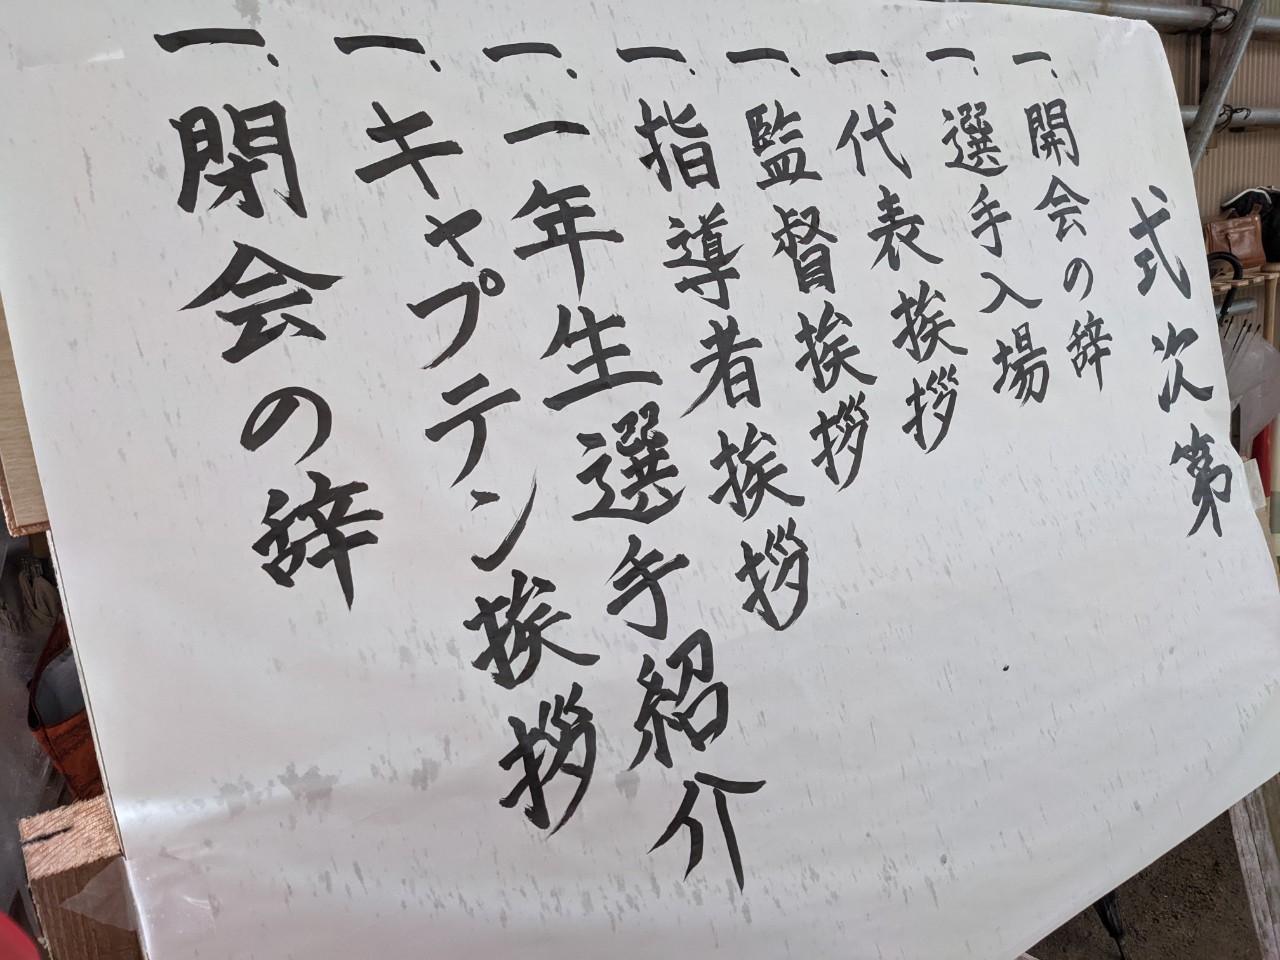 式次第
一、開会の辞
一、選手入場
一、代表挨拶
一、監督挨拶
一、指導者挨拶
一、一年生選手紹介
一、キャプテン挨拶
一、閉会の辞